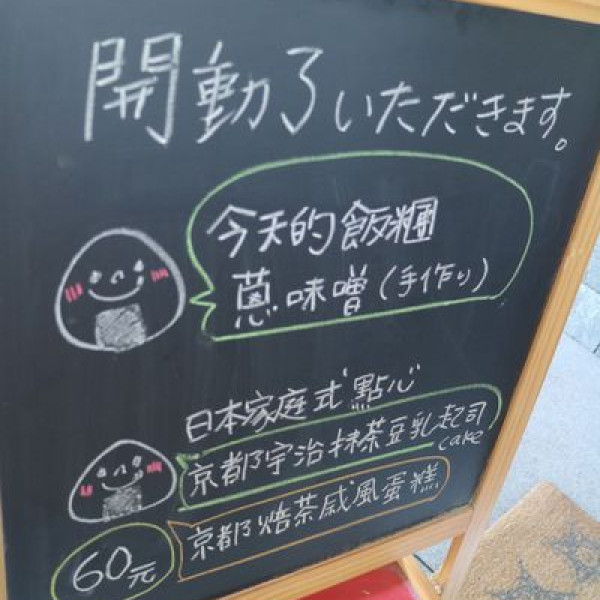 開動了いただきます。
今天的飯糰
蔥味噌(手作り)
日本家庭式點心
京都宇治抹茶豆乳起司
cake
京都焙茶戚風蛋糕
60元